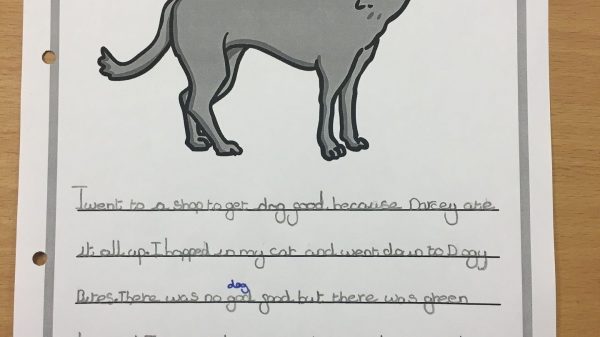 I went to a shop to get dog good. because Darcey ate
it all up. I hopped in my car and went down to Dogy
dog
Bites. There was no god good. but there was green